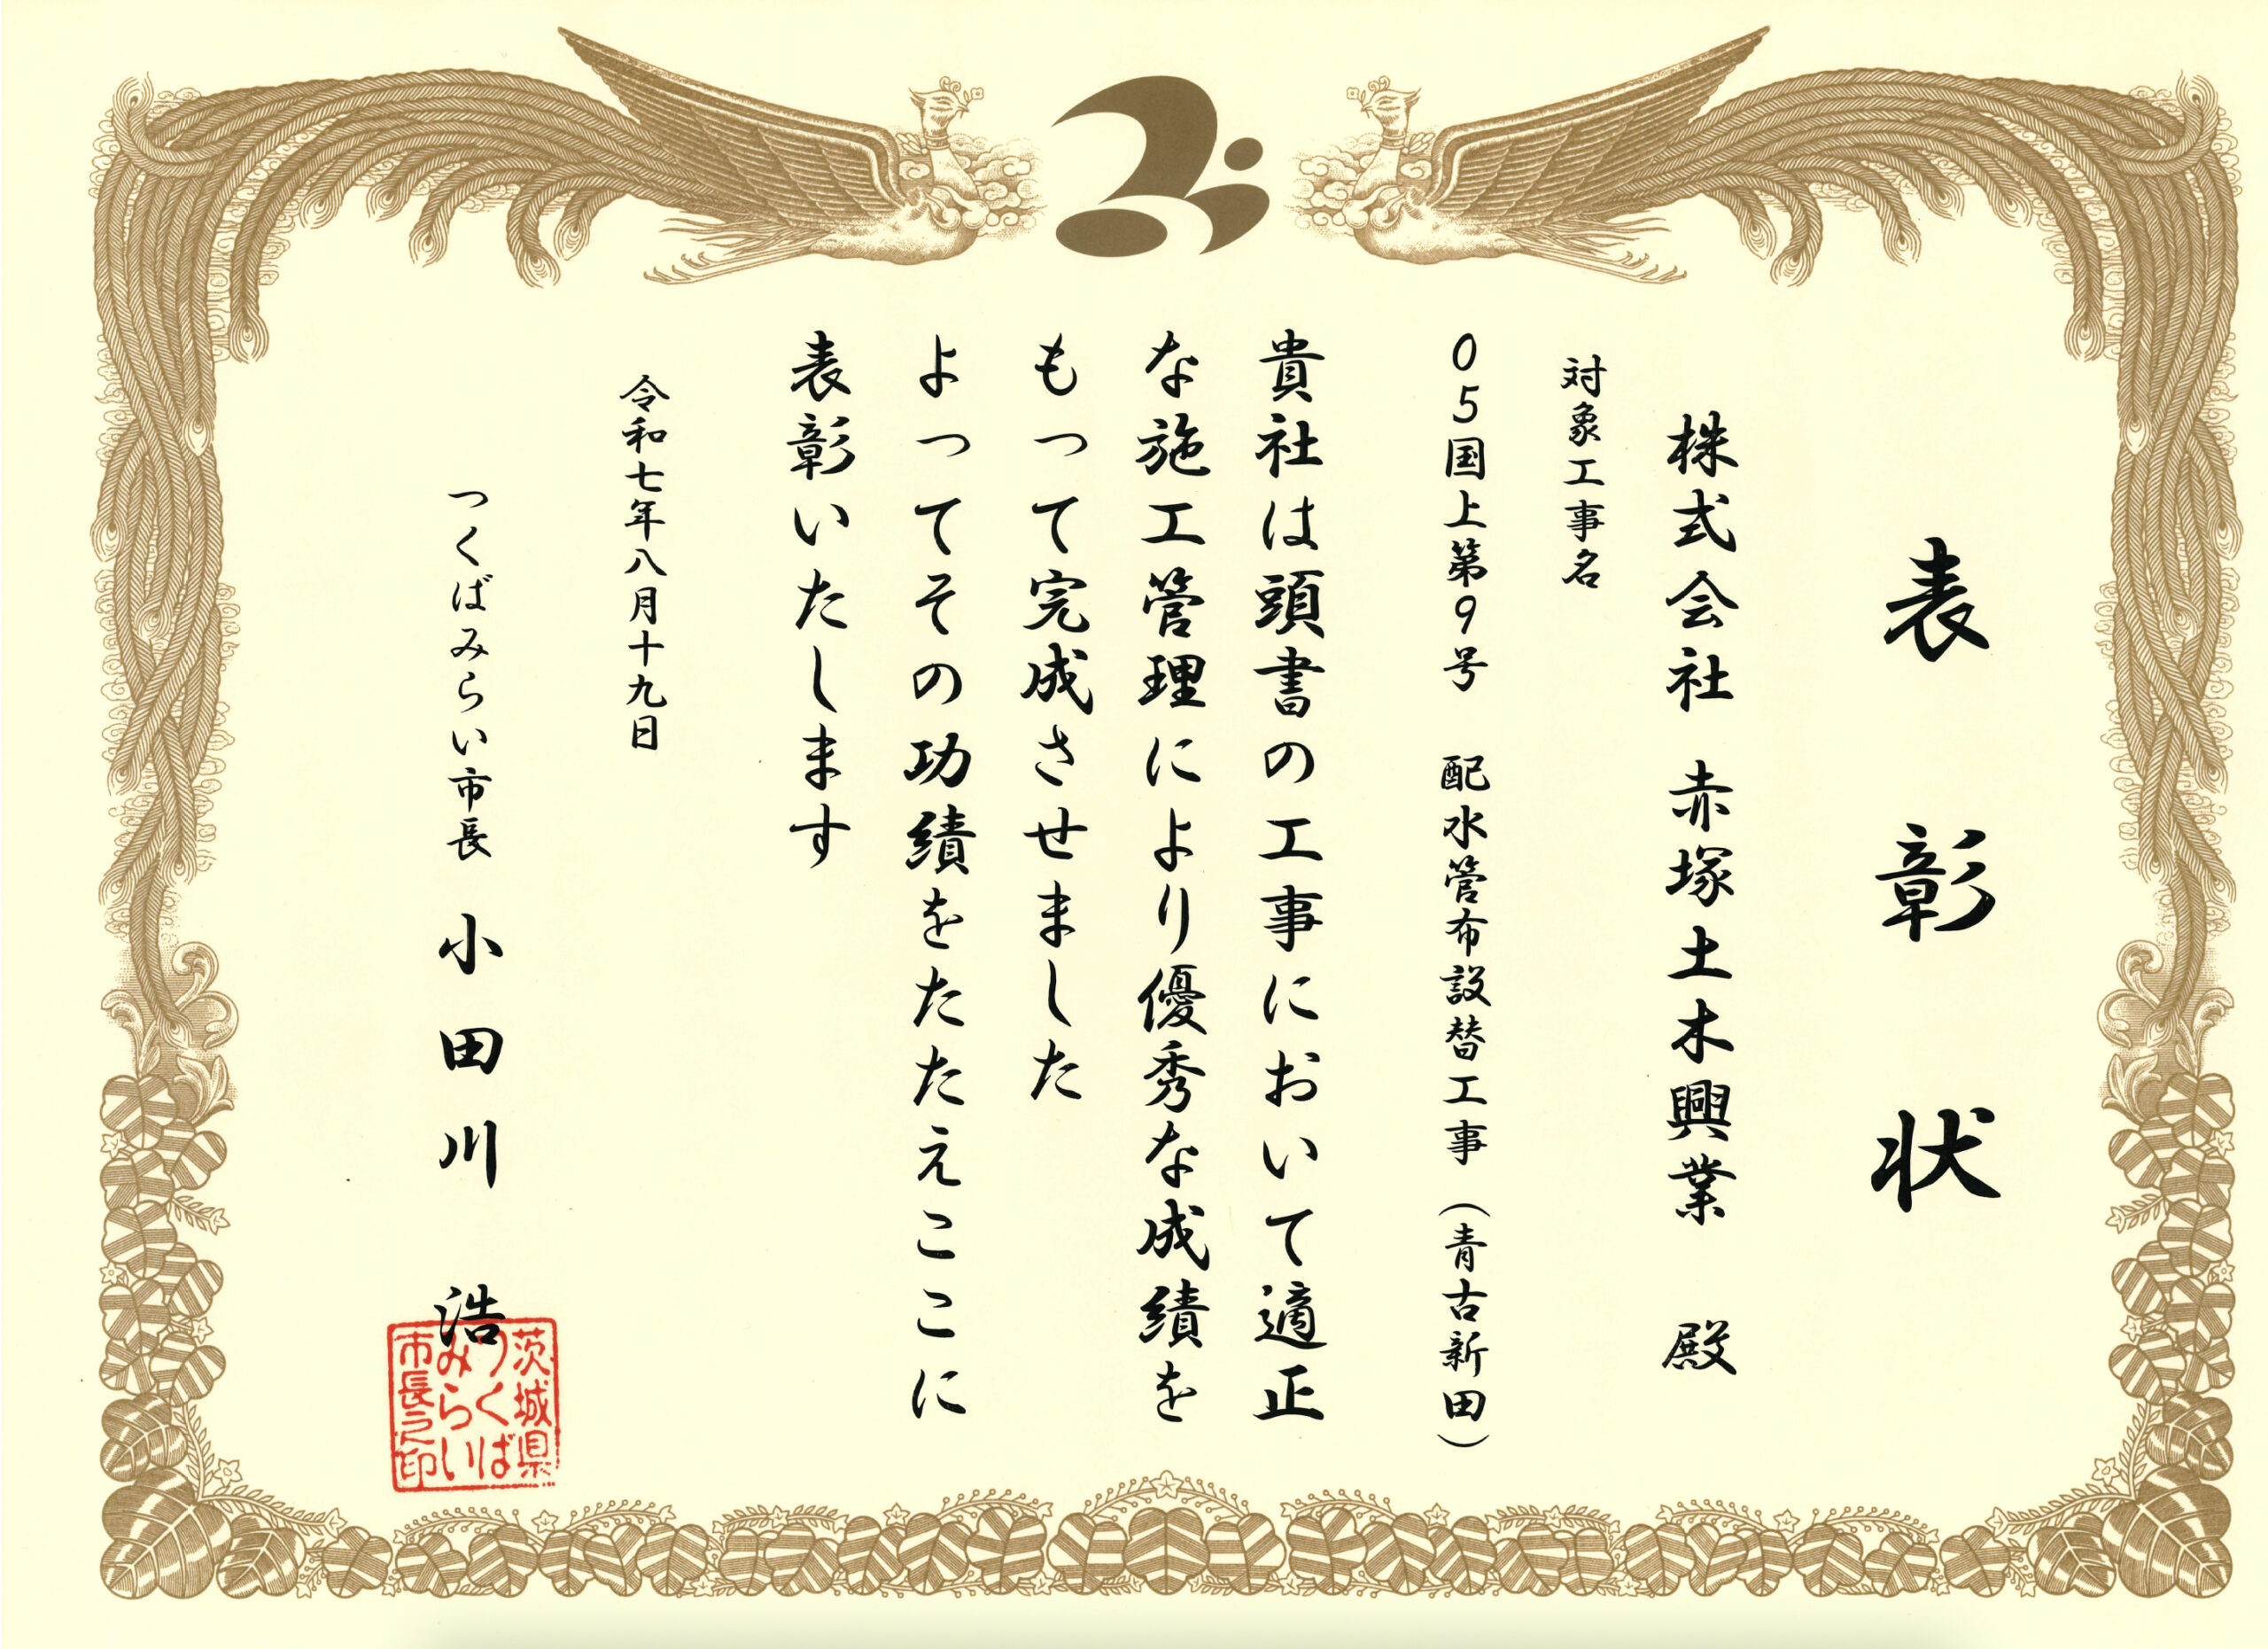 表彰状
株式会社 赤塚土木興業 殿
対象工事名
05国上第9号 配水管布設替工事(青古新田)
貴社は頭書の工事において適正
な施工管理により優秀な成績を
もって完成させました
よってその功績をたたえここに
表彰いたします
令和七年八月十九日
つくばみらい市長 小田川 浩
茨城県
つくば
みらい
市長之印